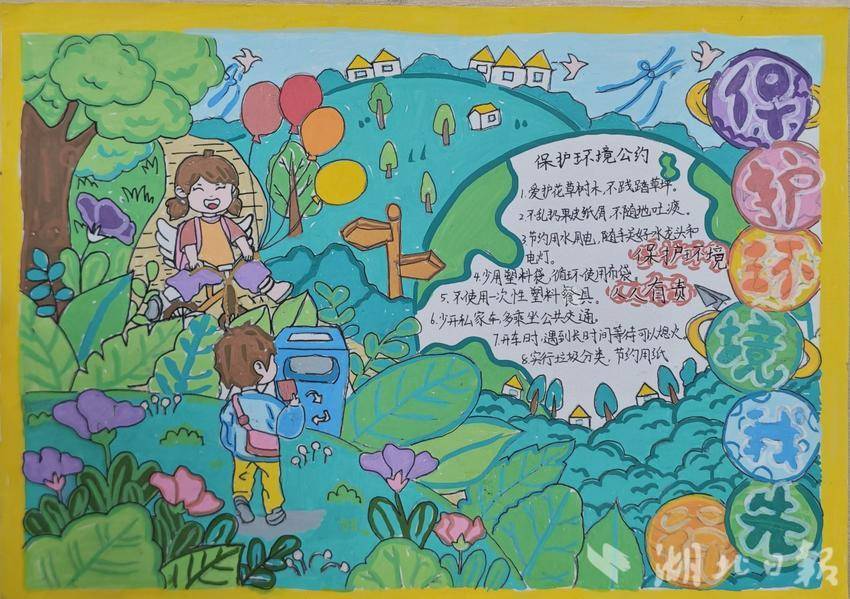 保护环境公约
1.爱护花草树木,不践踏草坪。
2.不乱扔果皮纸屑,不随地吐痰。
3.节约用水用电,随手关好水龙头和
电灯。
4.少用塑料袋,循环使用布袋。
5.不使用一次性塑料餐具。
6.少开私家车,多乘坐公共交通。
7.开车时,遇到长时间等待可以熄火。
8.实行垃圾分类,节约用纸
保护环境
人人有责
保
护
环
境
我
先
行
湖北日報